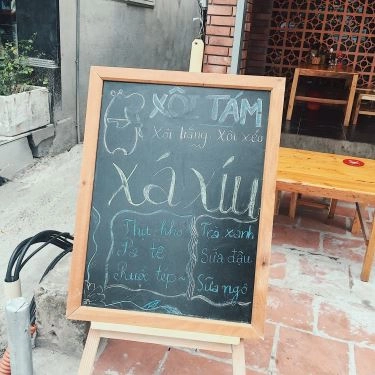 XÔI TÁM
Xôi trắng Xôi xéo
XÁ XÍU
Thịt kho
Pa tê
Ruốc tép
Trà xanh
Sữa đậu
Sữa ngô